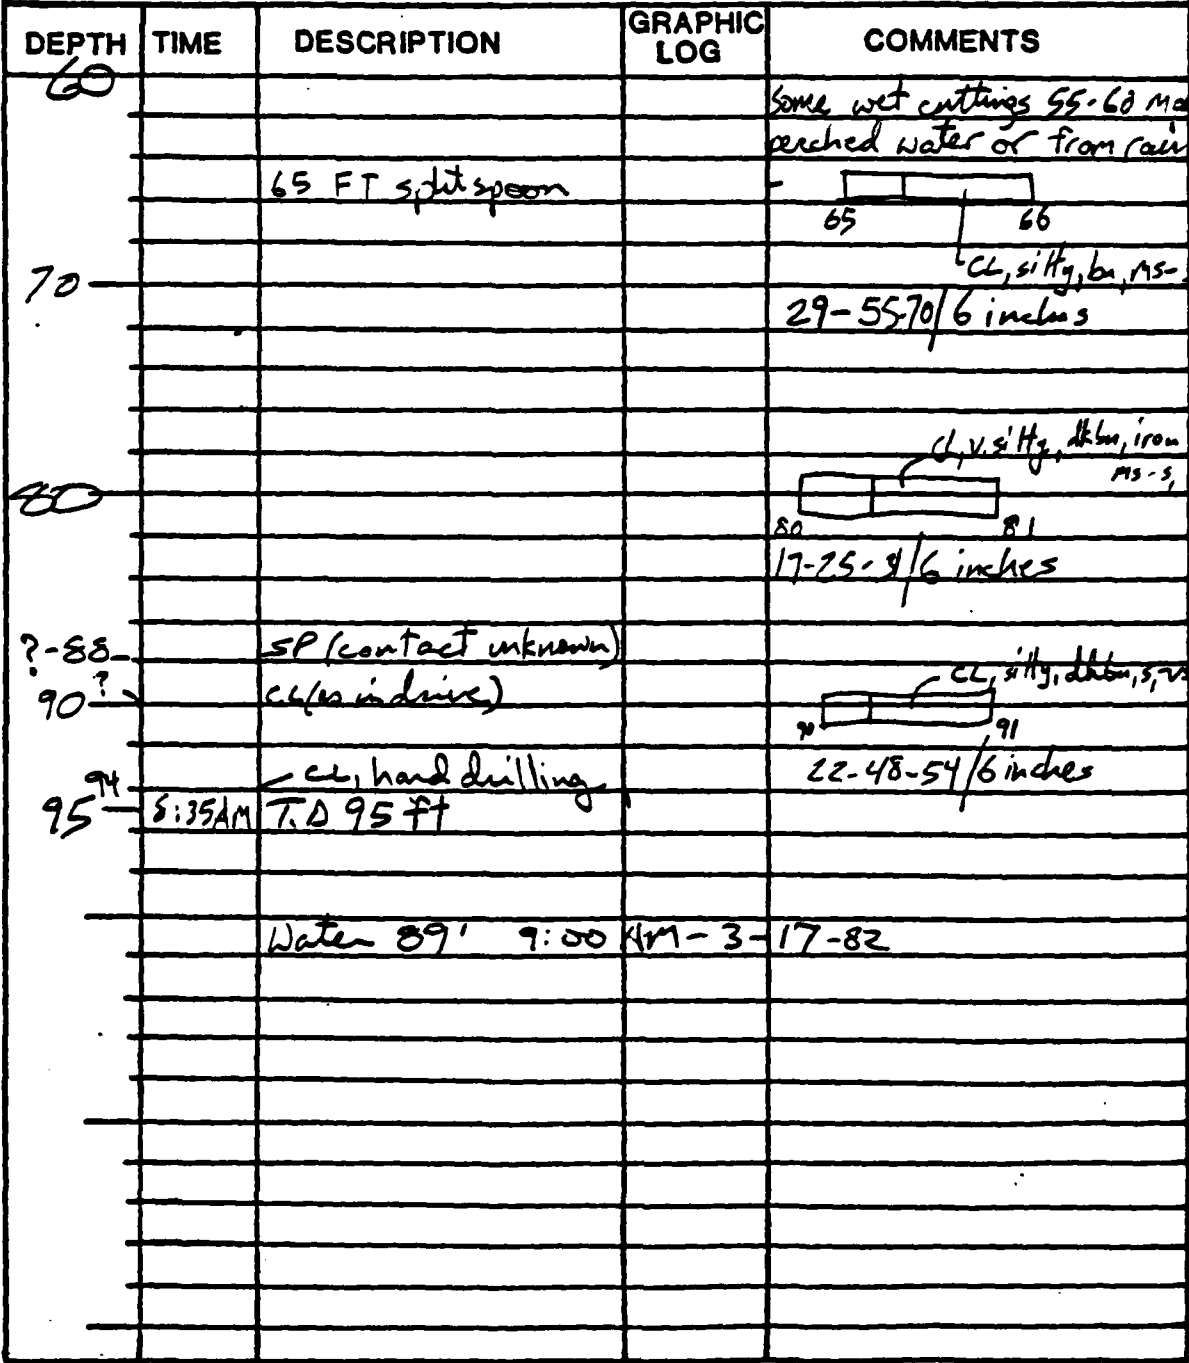 DEPTH TIME DESCRIPTION GRAPHIC LOG COMMENTS
60
Some wet cuttings 55-60
perched water or from rain
65 FT split spoon
65 66
CL, silty, bn, MS-
70
29-55-70/6 inches
CL, v. silty, dkbn, iron
MS-S,
80
80 81
17-25-31/6 inches
?-88 SP (contact unknown)
CL, silty, dkbn, S, VS
90? CL (as in drive)
90 91
22-48-54/6 inches
94 CL, hard drilling
95 8:35AM T.D 95 ft
Water 89' 9:00 AM-3-17-82